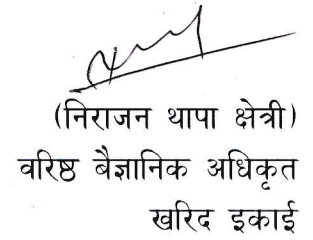 (निराजन थापा क्षेत्री)
वरिष्ठ बैज्ञानिक अधिकृत
खरिद इकाई